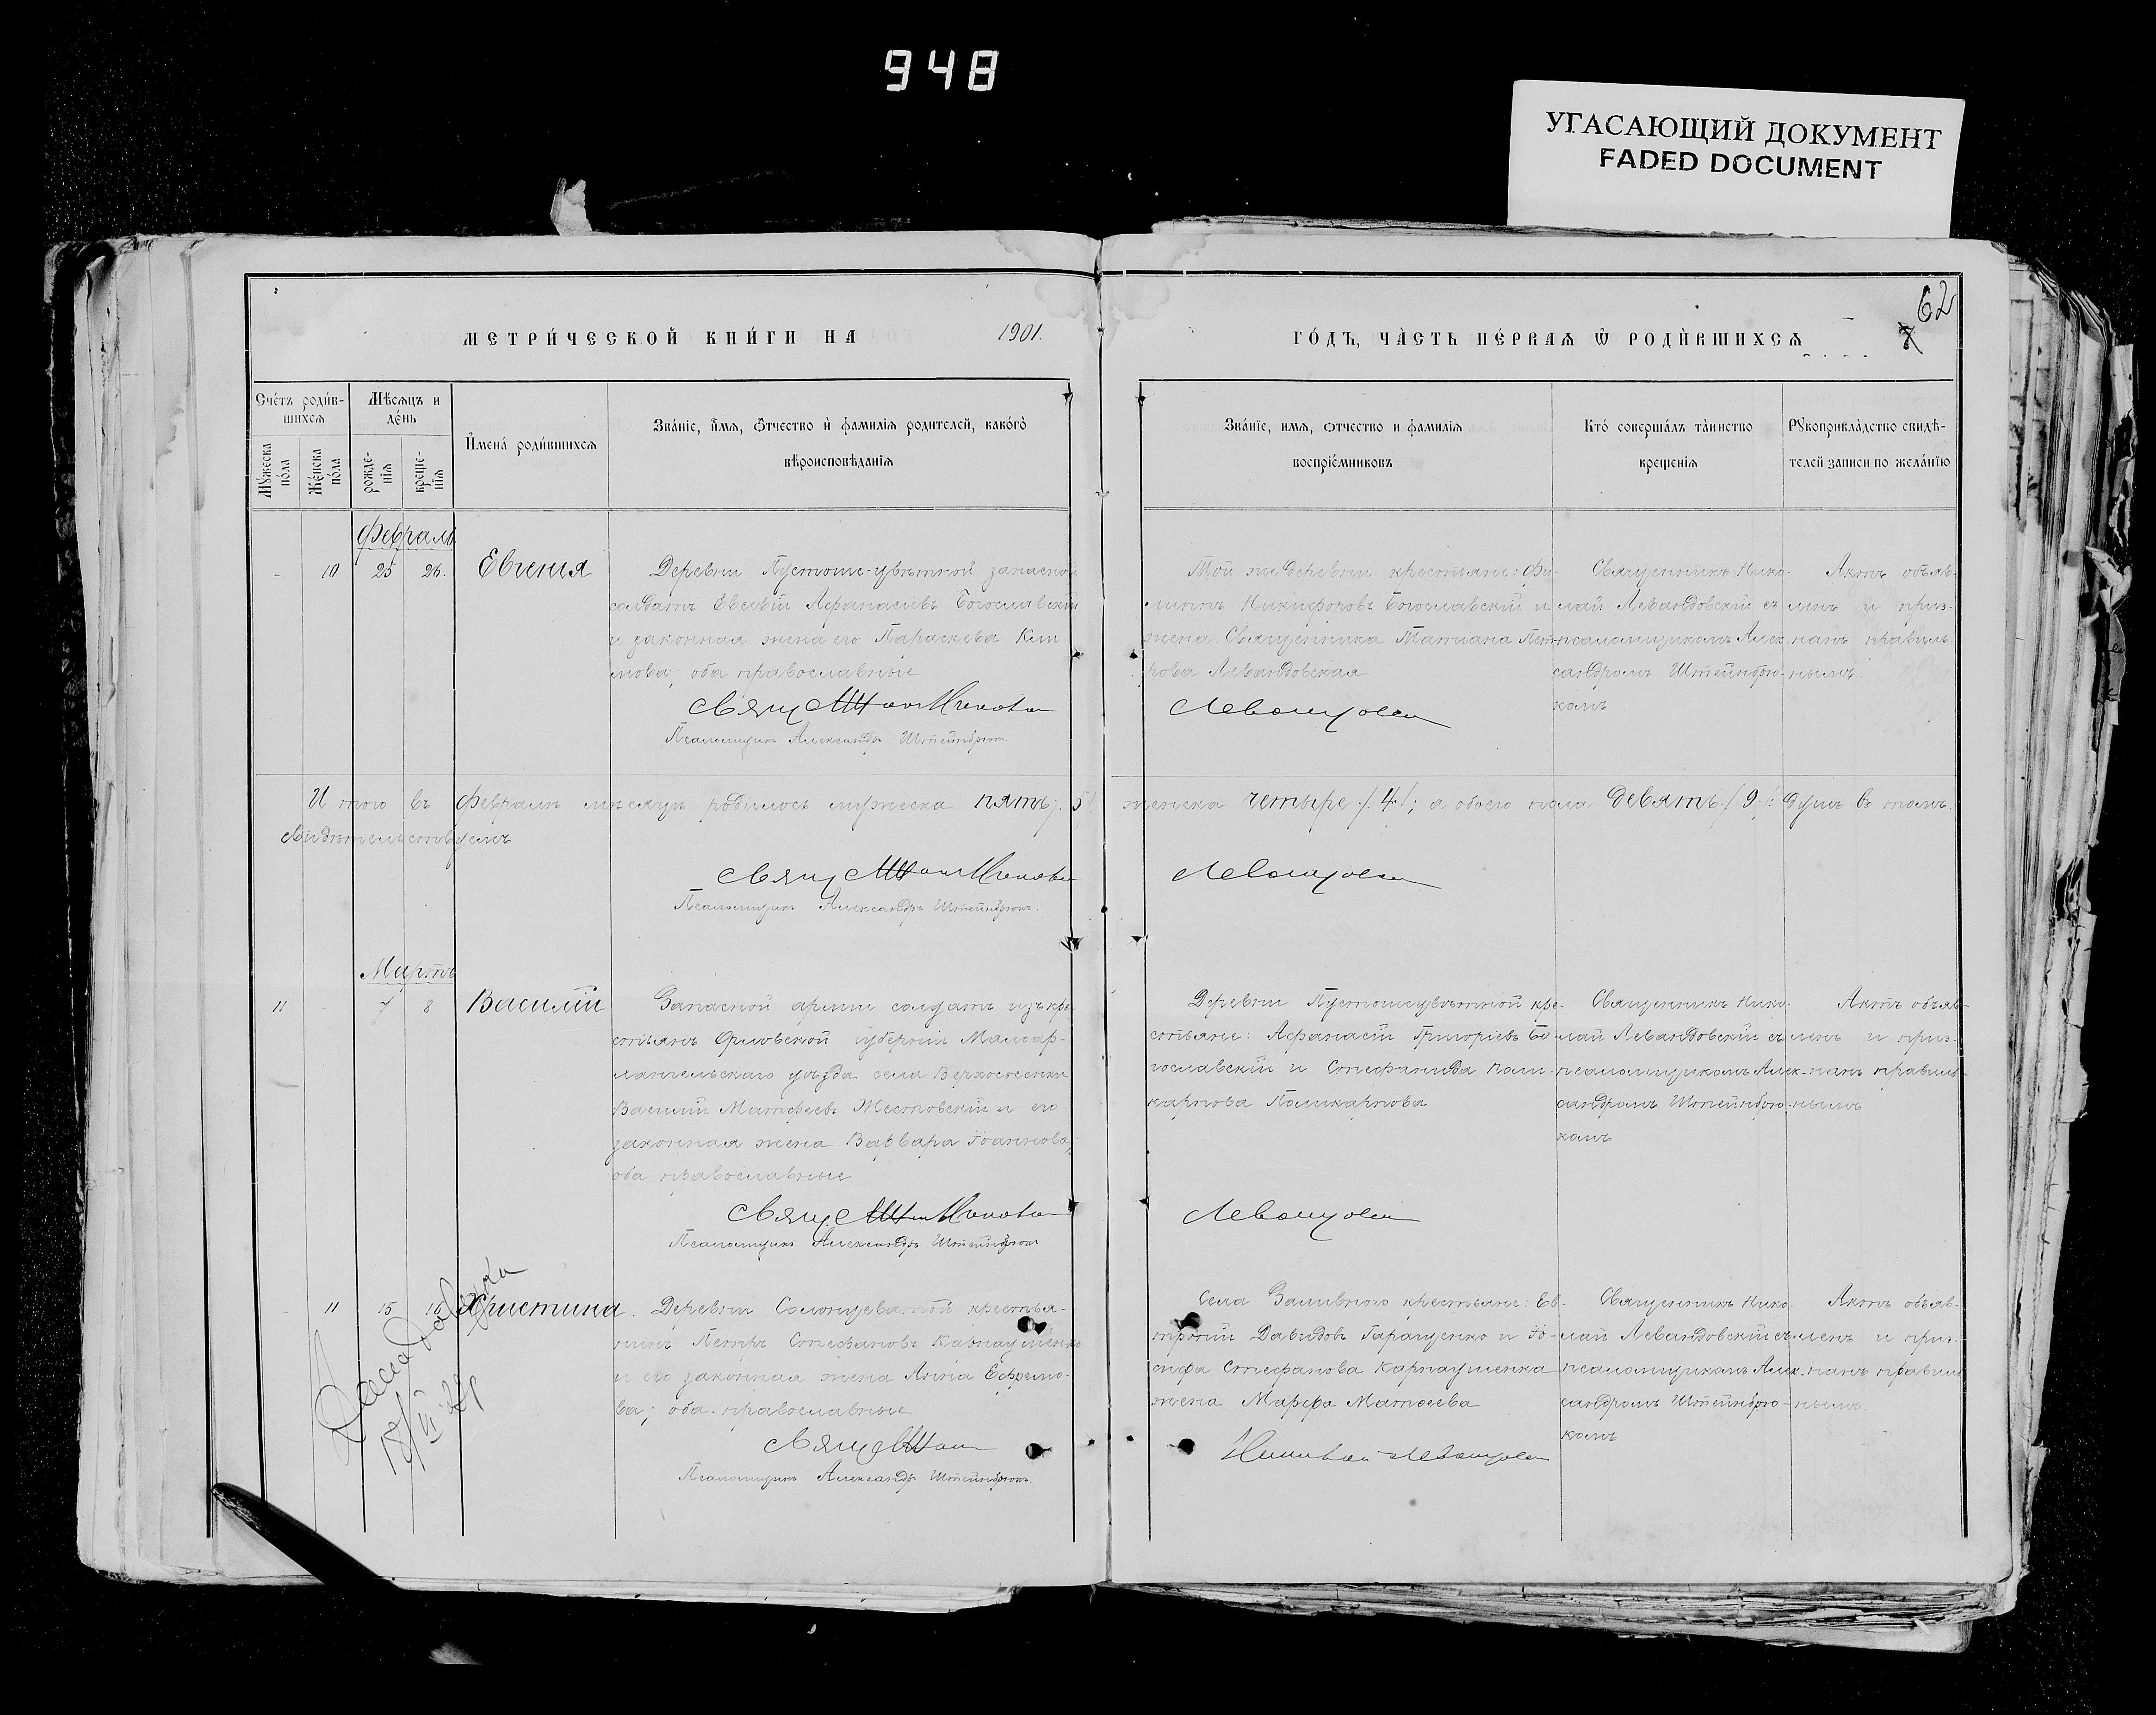 948
УГАСАЮЩИЙ ДОКУМЕНТ
FADED DOCUMENT
62
МЕТРИ́ЧЕСКОЙ КНИ́ГИ НА 1901.
ГО́ДЪ, ЧА̀СТЬ ПЕ́РВАѦ Ѡ҆ РОДЍВШИХСѦ 7
Сче́тъ роди́в-
шихсѧ
Мѣ́сѧцъ и
де́нь
И҆мена̀ роди́вшихсѧ
Зва́нїе, и҆́мѧ, ѻ҆́тчество и҆ фами́лїѧ роди́телей, како́гѡ
вѣроисповѣ́данїѧ
Мꙋ́жеска
по́ла
Же́нска
по́ла
рожде-
нїѧ
креще-
нїѧ
Зва́нїе, имѧ, ѻтчество и фами́лїѧ
воспрїе́мниковъ
Кто́ соверша́лъ та̀инство
креще́нїѧ
Рꙋкоприкла́дство свидѣ́-
телей записи по жела́нїю
Февраль
- 10 25 26. Евгенія
Деревни Пустоше-цвѣтной запасной
солдатъ Евсевій Аѳанасіевъ Богославскій
и законная жена его Параскева Кли
мова; оба православные
Свящ
Псаломщикъ Александръ Штейнбрюкъ.
Той же деревни крестьяне: Фи-
липпъ Никифоровъ Богославскій и
жена Священника Татіана Пет-
рова Левандовская
Священникъ Нико-
лай Левандовскій съ
псаломщикомъ Алек-
сандромъ Штейнбрю-
комъ
Актъ объяв-
ленъ и приз-
нанъ правиль-
нымъ.
Итого въ Февралѣ мѣсяцѣ родилось мужеска пять 5 женска четыре /4/; а обоего пола девять /9/: душъ въ томъ
свидѣтельствуемъ
Свящ
Псаломщикъ Александръ Штейнбрюкъ.
Мартъ
11 - 7 8 Василій
Запасной арміи солдатъ изъ кре
стьянъ Орловской губерніи Малоар-
хангельскаго уѣзда села Верхососенки
Василій Матѳеевъ Жестовскій и его
законная жена Варвара Іоаннова;
оба православные
Свящ
Псаломщикъ Александръ Штейнбрюкъ
Деревни Пустошецвѣтной кре-
стьяне: Аѳанасій Григоріевъ Бо-
гославскій и Стефанида Поли-
карпова Поликарпова
Священникъ Нико-
лай Левандовскій съ
псаломщикомъ Алек-
сандромъ Штейнбрю-
комъ
Актъ объяв-
ленъ и приз-
нанъ правиль-
нымъ
- 11 15 16 Христина.
Деревни Солонцеватой крестья-
нинъ Петръ Стефановъ Карнаушенко
и его законная жена Анна Ефремо-
ва; оба православные
Свящ
Псаломщикъ Александръ Штейнбрюкъ.
Села Заливного крестьяне: Ев-
Давидовъ Геращенко и Іо-
сифа Стефанова Карнаушенка
жена Марфа Матѳеева
Священникъ Нико-
лай Левандовскій съ
псаломщикомъ Алек-
сандромъ Штейнбрю-
комъ
Актъ объяв-
ленъ и приз-
нанъ правиль
нымъ.